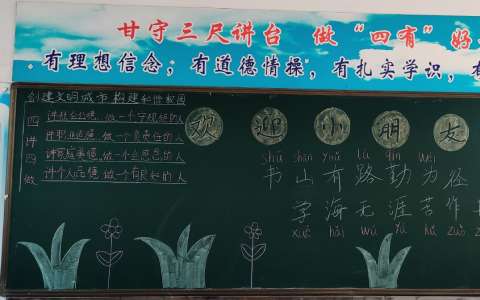 甘守三尺讲台 做“四有”好
有理想信念，有道德情操，有扎实学识，有
创建文明城市 构建和谐校园
四讲四做
讲社会公德，做一个守规矩的人
讲职业道德，做一个负责任的人
讲家庭美德，做一个
的人
讲个人品德，做一个有良知的人
欢迎小朋友
shū shān yǒu lù qín wéi
书山有路勤为径
学海无涯苦作
xué hǎi wú yá kǔ zuò